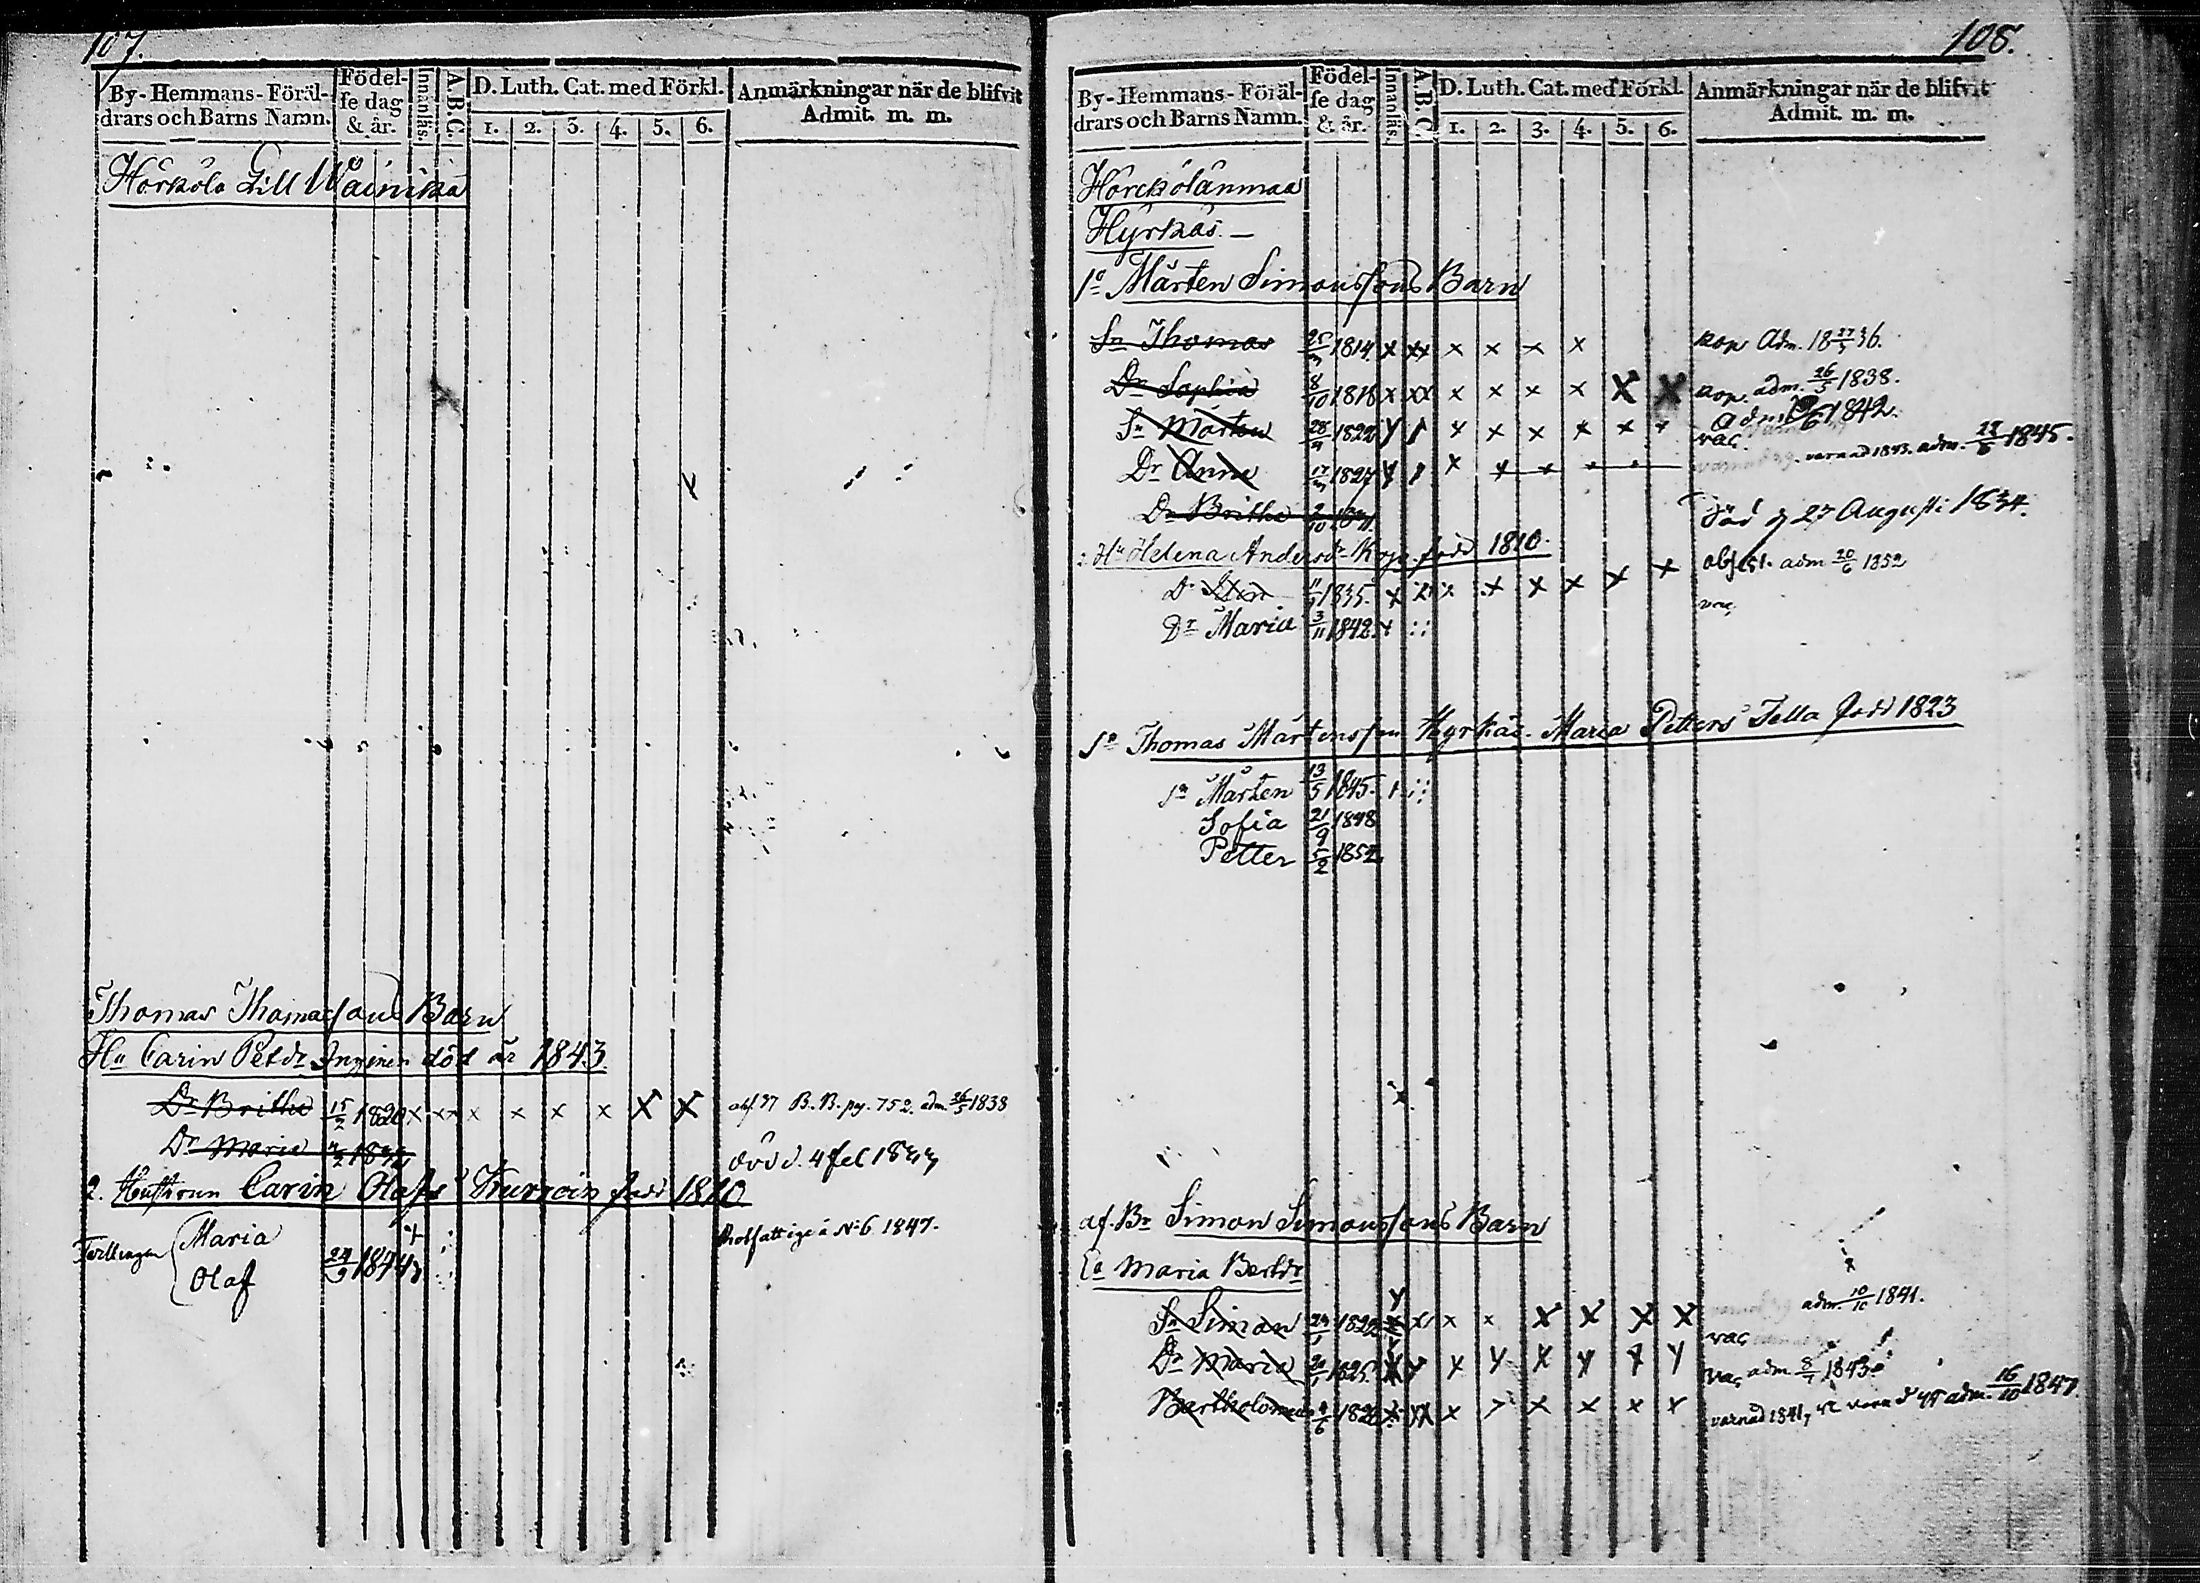 107.
By-Hemmans-Föräl-
drars och Barns Namn.
Födel-
se dag
& år.
Innanläs.
A.B.C.
D. Luth. Cat. med Förkl.
1. 2. 3. 4. 5. 6.
Anmärkningar när de blifvit
Admit. m. m.
Hörkölä till Wäinikä
Thomas Thomassons Barn
Hu Carin Petdr död år 1843.
Dr Britha 15/2 1820 x xx x x x x X X B. B. pg. 752. adm. 26/5 1838
Dr Maria död d. 4 feb
2. Hustrun Carin Olofs född 1810
Tvillingar Maria x
Olaf 24/9 1844
No 6 1847.
108.
By-Hemmans-Föräl-
drars och Barns Namn.
Födel-
se dag
& år.
Innanläs.
A.B.C.
D. Luth. Cat. med Förkl.
1. 2. 3. 4. 5. 6.
Anmärkningar när de blifvit
Admit. m. m.
Hörckölänmaa
Hyrkäs. —
1o Mårten Simonssons Barn
Sn Thomas 1814 x xx x x x x kop Adm. 18 27/5 36.
Dr Sophia 8/10 1818 x xx x x x x X X kop. adm. 26/5 1838.
Sn Mårten 1822 x x x x x x vac. adm 1842.
Dr Anna 1827 x x x varnad 1843. adm. 1845.
Dr Britha död d 27 Augusti 1834.
Hu Helena Andersdr född 1810.
Dr 1835. x x x x x x adm 20/6 1852
Dr Maria 3/11 1842. x vac
Sn Thomas Mårtensson Hyrkäs. Maria Petters Tella född 1823
Sn Mårten 13/5 1845.
Sofia 21/9 1848
Petter 5/2 1852
af. Br Simon Simonssons Barn
Ea Maria Bertdr
Sn Simon 1822 x x x x X X X X vac adm. 10/10 1841.
Dr Maria 1825. x x x x x x x vac adm. 1843.
Bartholomeus 4/6 1826 x xx x x x x x varnad 1841, adm. 16/10 1847